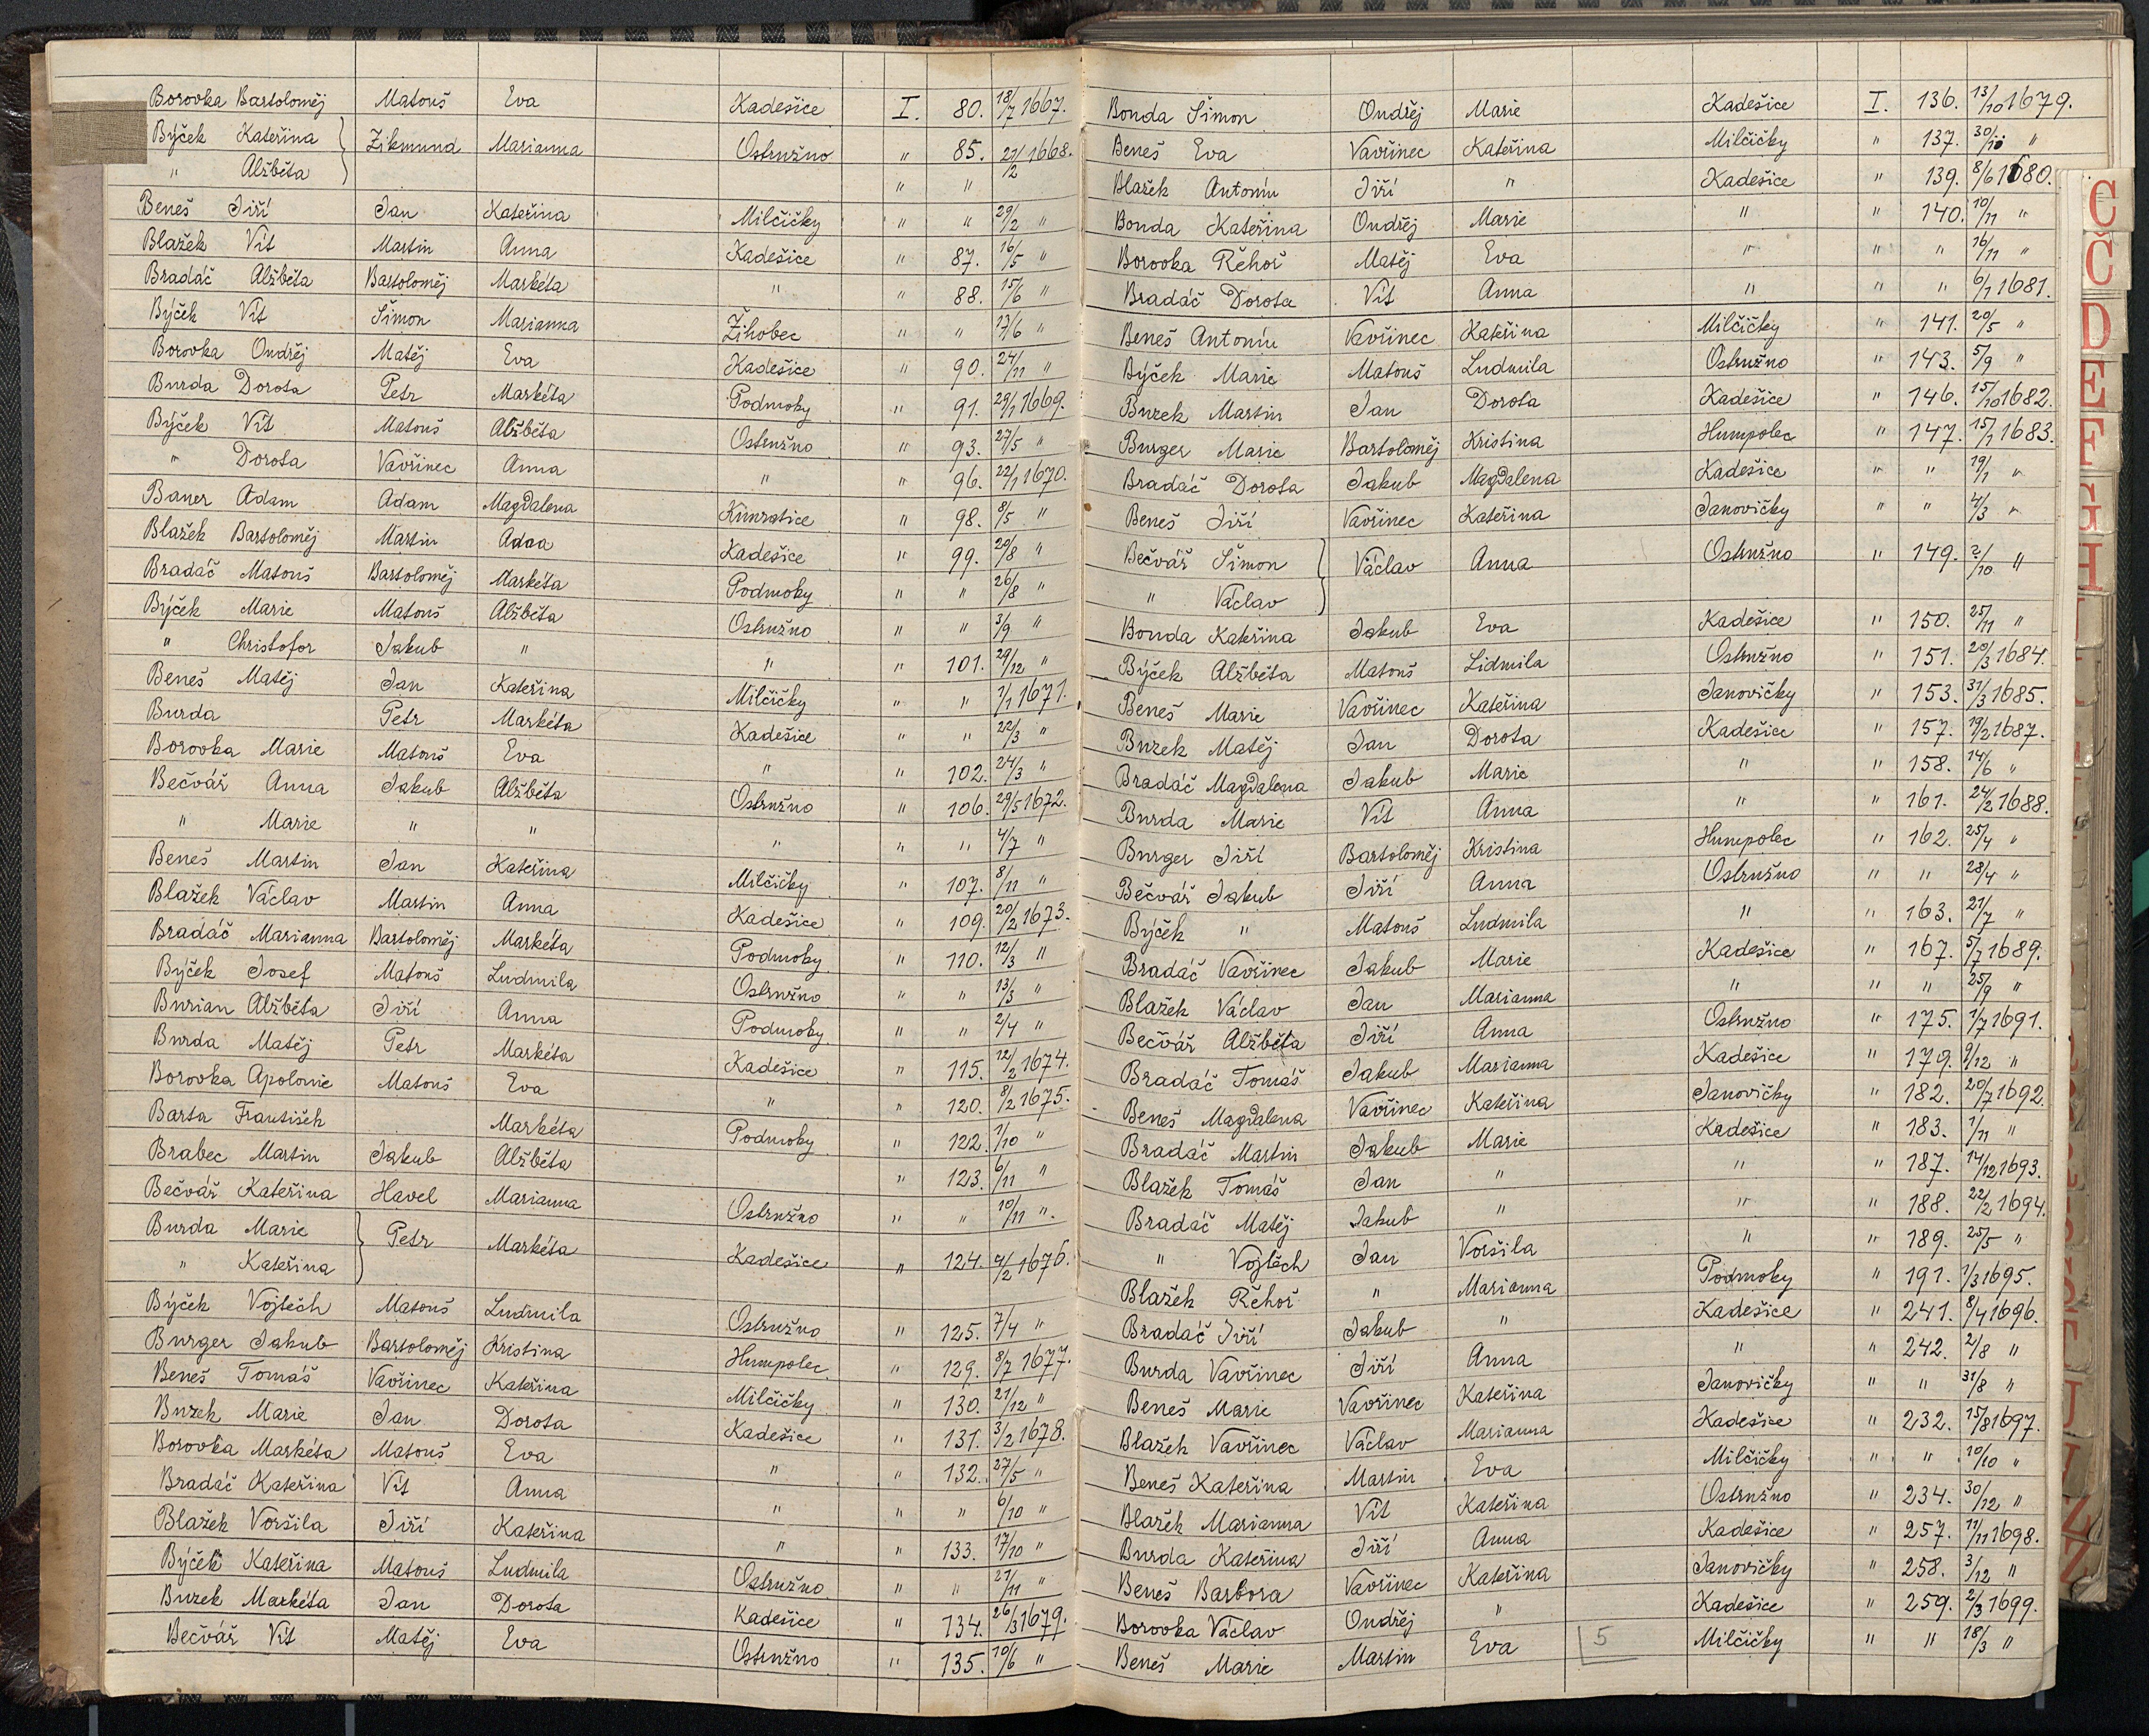 Borovka Bartoloměj Matouš Eva Kadešice I. 80. 18/7 1667.
Býček Kateřina } Zikmund Marianna Ostružno " 85. 21/2 1668.
" Alžběta } " "
Beneš Jiří Jan Kateřina Milčičky " " 29/2 "
Blažek Vít Martin Anna Kadešice " 87. 16/5 "
Bradáč Alžběta Bartoloměj Markéta " " 88. 15/6 "
Býček Vít Šimon Marianna Žihobec " " 17/6 "
Borovka Ondřej Matěj Eva Kadešice " 90. 24/11 "
Burda Dorota Petr Markéta Podmoky " 91. 29/1 1669.
Býček Vít Matouš Alžběta Ostružno " 93. 27/5 "
" Dorota Vavřinec Anna " " 96. 22/1 1670.
Baner Adam Adam Magdalena Kunratice " 98. 8/5 "
Blažek Bartoloměj Martin Adaa Kadešice " 99. 20/8 "
Bradáč Matouš Bartoloměj Markéta Podmoky " " 26/8 "
Býček Marie Matouš Alžběta Ostružno " " 3/9 "
" Christofor Jakub " " " 101. 29/12 "
Beneš Matěj Jan Kateřina Milčičky " " 1/1 1671.
Burda Petr Markéta Kadešice " " 22/3 "
Borovka Marie Matouš Eva " " 102. 24/3 "
Bečvář Anna Jakub Alžběta Ostružno " 106. 29/5 1672.
" Marie " " " " " 4/7 "
Beneš Martin Jan Kateřina Milčičky " 107. 8/11 "
Blažek Václav Martin Anna Kadešice " 109. 20/2 1673.
Bradáč Marianna Bartoloměj Markéta Podmoky " 110. 12/3 "
Býček Josef Matouš Ludmila Ostružno " " 13/3 "
Burian Alžběta Jiří Anna Podmoky " " 2/4 "
Burda Matěj Petr Markéta Kadešice " 115. 12/2 1674.
Borovka Apolonie Matouš Eva " " 120. 8/2 1675.
Barta František Markéta Podmoky " 122. 1/10 "
Brabec Martin Jakub Alžběta " 123. 6/11 "
Bečvář Kateřina Havel Marianna Ostružno " " 10/11 ".
Burda Marie } Petr Markéta Kadešice " 124. 1676.
" Kateřina }
Býček Vojtěch Matouš Ludmila Ostružno " 125. 7/4 "
Burger Jakub Bartoloměj Kristina Humpolec " 129. 8/7 1677.
Beneš Tomáš Vavřinec Kateřina Milčičky " 130. 21/12 "
Buzek Marie Jan Dorota Kadešice " 131. 3/2 1678.
Borovka Markéta Matouš Eva " " 132. 27/5 "
Bradáč Kateřina Vít Anna " " " 6/10 "
Blažek Voršila Jiří Kateřina " " 133. 17/10 "
Býček Kateřina Matouš Ludmila Ostružno " " 27/11 "
Buzek Markéta Jan Dorota Kadešice " 134. 26/3 1679.
Bečvář Vít Matěj Eva Ostružno " 135. 10/6 "
Bonda Šimon Ondřej Marie Kadešice I. 136. 13/10 1679.
Beneš Eva Vavřinec Kateřina Milčičky " 137. 30/10 "
Blažek Antonín Jiří " Kadešice " 139. 8/6 1680.
Bonda Kateřina Ondřej Marie " " 140. 10/11 "
Borovka Řehoř Matěj Eva " " " 16/11 "
Bradáč Dorota Vít Anna " " " 6/1 1681.
Beneš Antonín Vavřinec Kateřina Milčičky " 141. 20/5 "
Býček Marie Matouš Ludmila Ostružno " 143. 5/9 "
Buzek Martin Jan Dorota Kadešice " 146. 15/10 1682.
Burger Marie Bartoloměj Kristina Humpolec " 147. 15/1 1683.
Bradáč Dorota Jakub Magdalena Kadešice " " 19/1 "
Beneš Jiří Vavřinec Kateřina Janovičky " " 4/3 "
Bečvář Šimon } Václav Anna Ostružno " 149. 2/10 "
" Václav }
Bonda Kateřina Jakub Eva Kadešice " 150. 25/11 "
Býček Alžběta Matouš Lidmila Ostružno " 151. 20/3 1684.
Beneš Marie Vavřinec Kateřina Janovičky " 153. 31/3 1685.
Buzek Matěj Jan Dorota Kadešice " 157. 19/2 1687.
Bradáč Magdalena Jakub Marie " " 158. 14/6 "
Burda Marie Vít Anna " " 161. 24/2 1688.
Burger Jiří Bartoloměj Kristina Humpolec " 162. 25/4 "
Bečvář Jakub Jiří Anna Ostružno " " 28/4 "
Býček " Matouš Ludmila " " 163. 21/7 "
Bradáč Vavřinec Jakub Marie Kadešice " 167. 5/7 1689.
Blažek Václav Jan Marianna " " " 25/9 "
Bečvář Alžběta Jiří Anna Ostružno " 175. 1/7 1691.
Bradáč Tomáš Jakub Marianna Kadešice " 179. 9/12 "
Beneš Magdalena Vavřinec Kateřina Janovičky " 182. 20/7 1692.
Bradáč Martin Jakub Marie Kadešice " 183. 1/11 "
Blažek Tomáš Jan " " " 187. 14/12 1693.
Bradáč Matěj Jakub " " " 188. 22/2 1694.
" Vojtěch Jan Voršila " " 189. 25/5 "
Blažek Řehoř " Marianna Podmoky " 191. 1/3 1695.
Bradáč Jiří Jakub " Kadešice " 241. 8/4 1696.
Burda Vavřinec Jiří Anna " " 242. 2/8 "
Beneš Marie Vavřinec Kateřina Janovičky " " 31/8 "
Blažek Vavřinec Václav Marianna Kadešice " 232. 15/8 1697.
Beneš Kateřina Martin Eva Milčičky " " 10/10 "
Blažek Marianna Vít Kateřina Ostružno " 234. 30/12 "
Burda Kateřina Jiří Anna Kadešice " 257. 11/11 1698.
Beneš Barbora Vavřinec Kateřina Janovičky " 258. 3/12 "
Borovka Václav Ondřej " Kadešice " 259. 2/3 1699.
Beneš Marie Martin Eva 5 Milčičky " " 18/3 "
C
Č
D
E
F
G
H